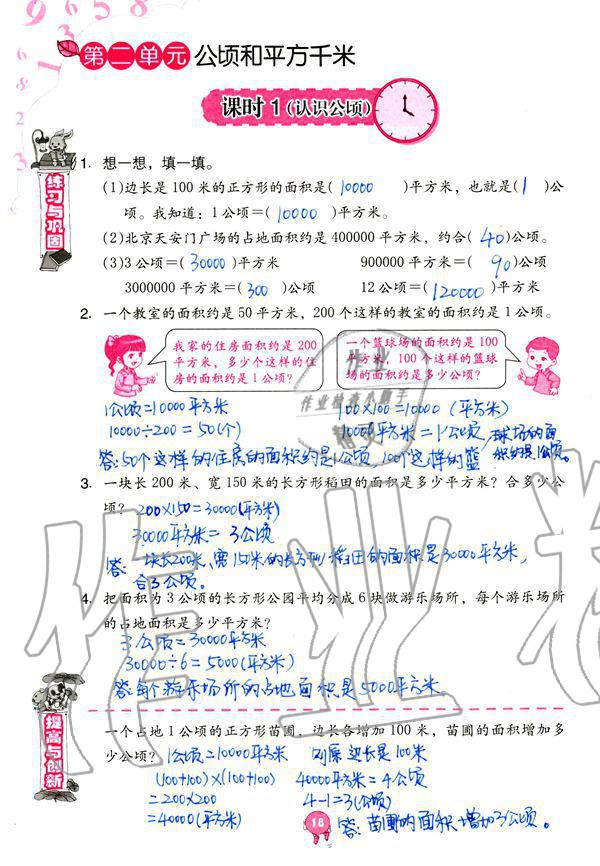 第二单元 公顷和平方千米
课时1（认识公顷）
练习与巩固
1. 想一想，填一填。
(1)边长是100米的正方形的面积是( 10000 )平方米，也就是( 1 )公
顷。我知道：1公顷=( 10000 )平方米。
(2)北京天安门广场的占地面积约是400000平方米，约合( 40 )公顷。
(3)3公顷=( 30000 )平方米 900000平方米=( 90 )公顷
3000000平方米=( 300 )公顷 12公顷=( 120000 )平方米
2. 一个教室的面积约是50平方米，200个这样的教室的面积约是1公顷。
我家的住房面积约是200
平方米，多少个这样的住
房的面积约是1公顷？
一个篮球场的面积约是100
平方米，100个这样的篮球
场的面积约是多少公顷？
1公顷=10000平方米
10000÷200=50(个)
答:50个这样的住房的面积约是1公顷,
100×100=10000(平方米)
10000平方米=1公顷
100个这样的篮球场的面
积约是1公顷。
3. 一块长200米、宽150米的长方形稻田的面积是多少平方米？合多少公
顷？ 200×150=30000(平方米)
30000平方米=3公顷
答:一块长200米、宽150米的长方形稻田的面积是30000平方米,
合3公顷。
4. 把面积为3公顷的长方形公园平均分成6块做游乐场所，每个游乐场所
的占地面积是多少平方米？
3公顷=30000平方米
30000÷6=5000(平方米)
答:每个游乐场所的占地面积是5000平方米。
提高与创新
一个占地1公顷的正方形苗圃，边长各增加100米，苗圃的面积增加多
少公顷？ 1公顷=10000平方米 则原边长是100米
(100+100)×(100+100) 40000平方米=4公顷
=200×200 4-1=3(公顷)
=40000(平方米) 答:苗圃的面积增加3公顷。
18
作业
作业检查小助手